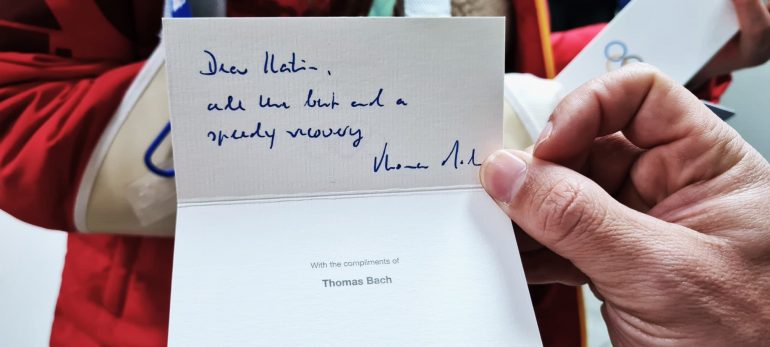 Dear
all the best and a
speedy recovery
Thomas Bach
With the compliments of
Thomas Bach